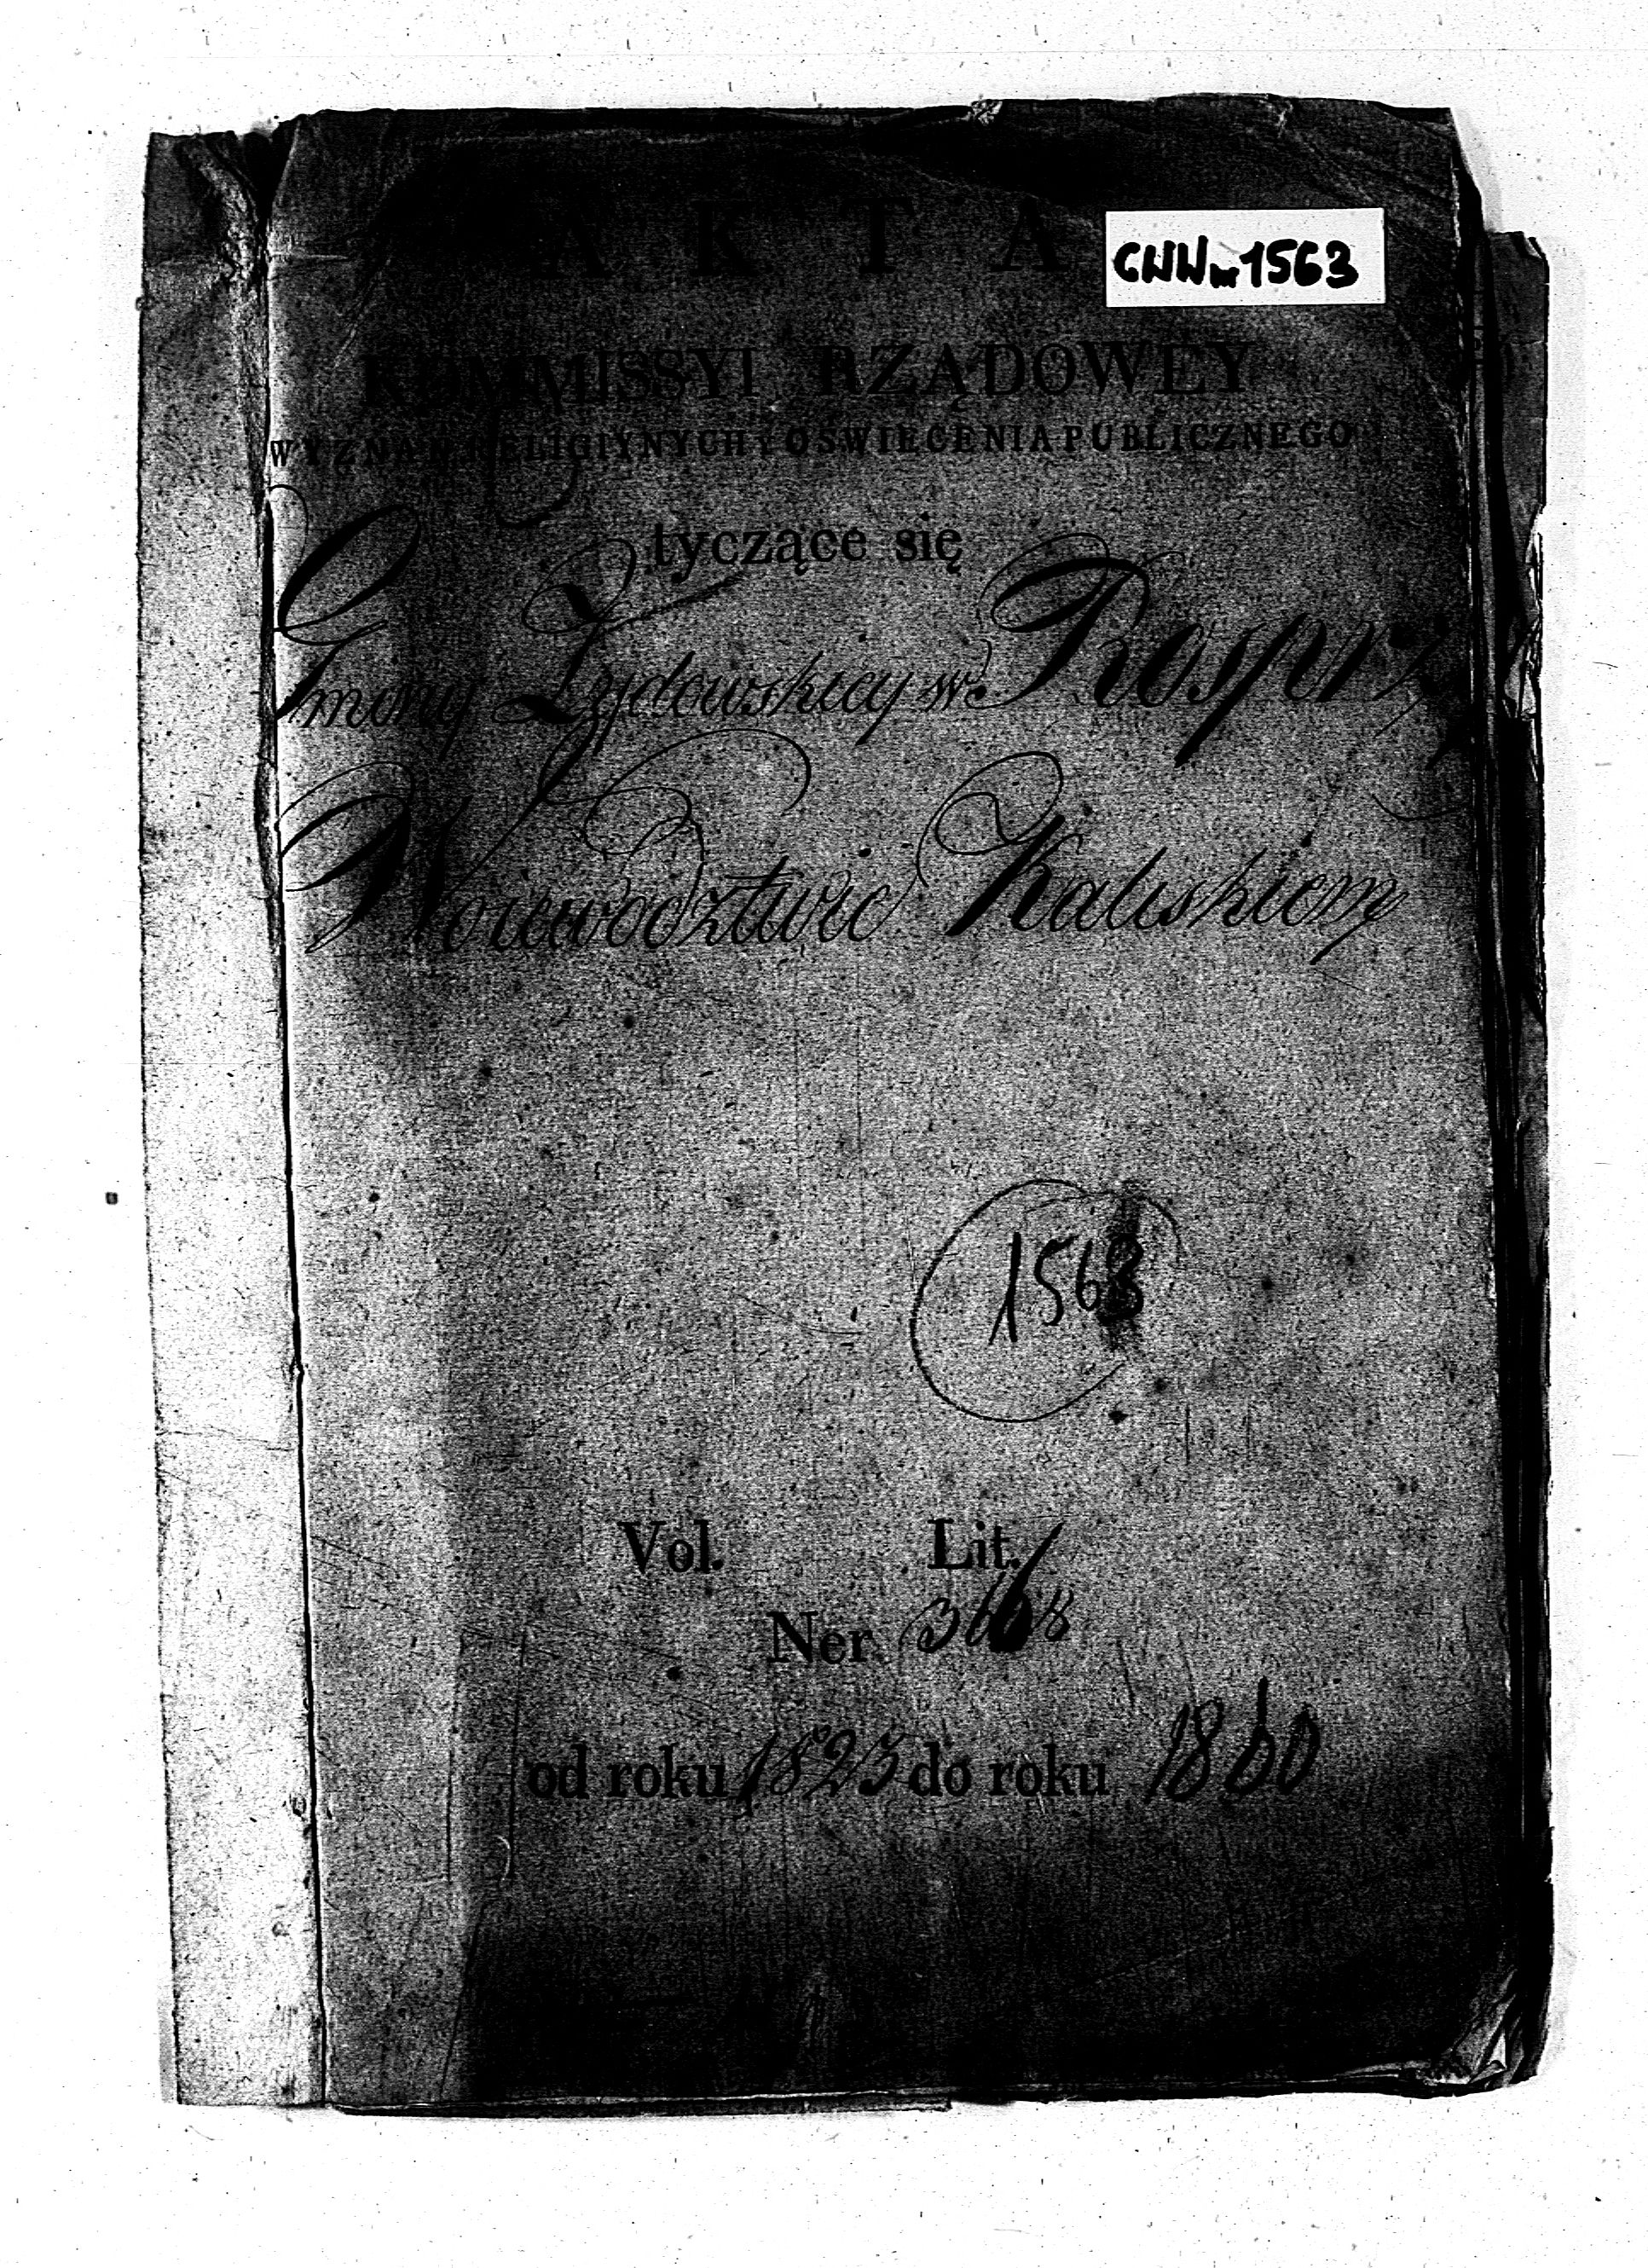 AKTA
CWWm 1563
KOMMISSYI RZĄDOWEY
WYZNAŃ RELIGIYNYCH Y OŚWIECENIA PUBLICZNEGO
tyczące się
Gminy Żydowskiey w Rosprz
Woiewództwie Kaliskiem
1563
Vol. Lit.
Ner.
od roku 1823 do roku 1860